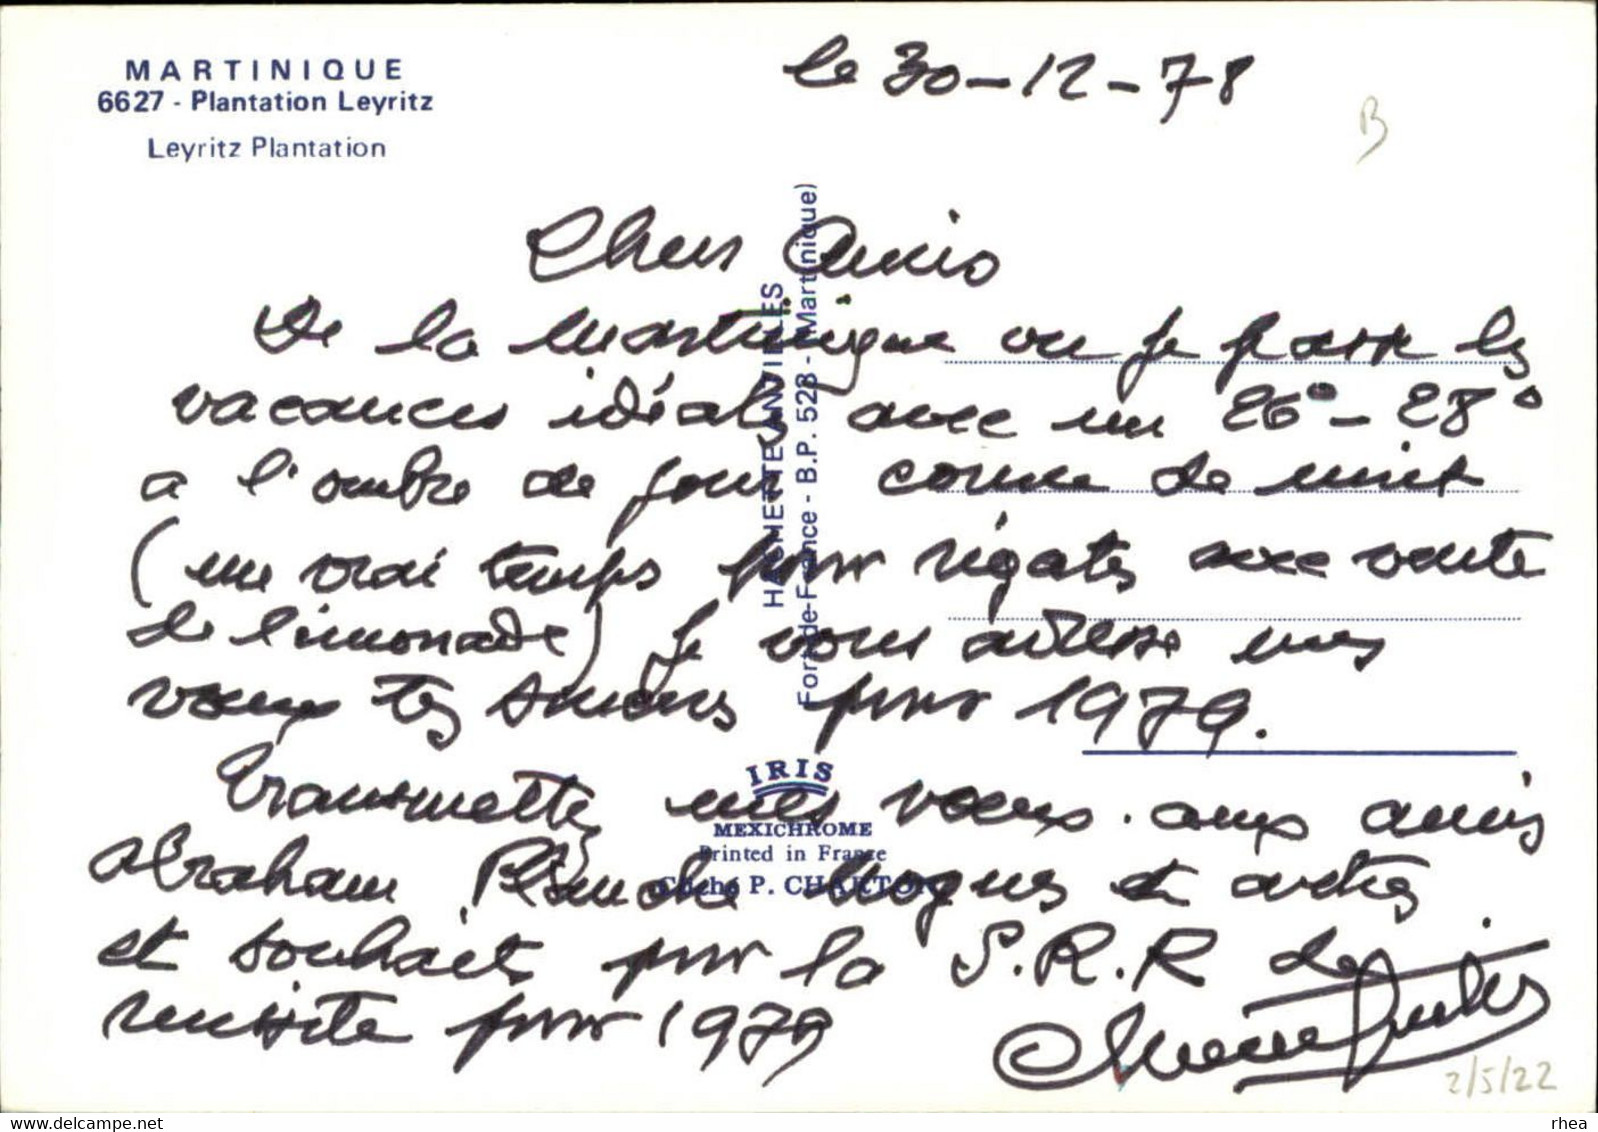 MARTINIQUE
6627 - Plantation Leyritz
Leyritz Plantation
le 30-12-78
B
Chers Amis
De la Martinique ou je passe les
vacances idéales avec un 26° - 28°
a l'ombre de jour comme de nuit
(un vrai temps pour régates avec vente
de limonade) Je vous adresse mes
voeux tes sincères pour 1979.
Transmettez mes voeux aux amis
Abraham Planche Mogues et autres
et souhaits pour la S.R.R de
réussite pour 1979
HACHETTE ANTILLES
Fort-de-France - B.P. 528 - (Martinique)
IRIS
MEXICHROME
Printed in France
Cliché P. CHARTON
2/5/22
delcampe.net
rhea